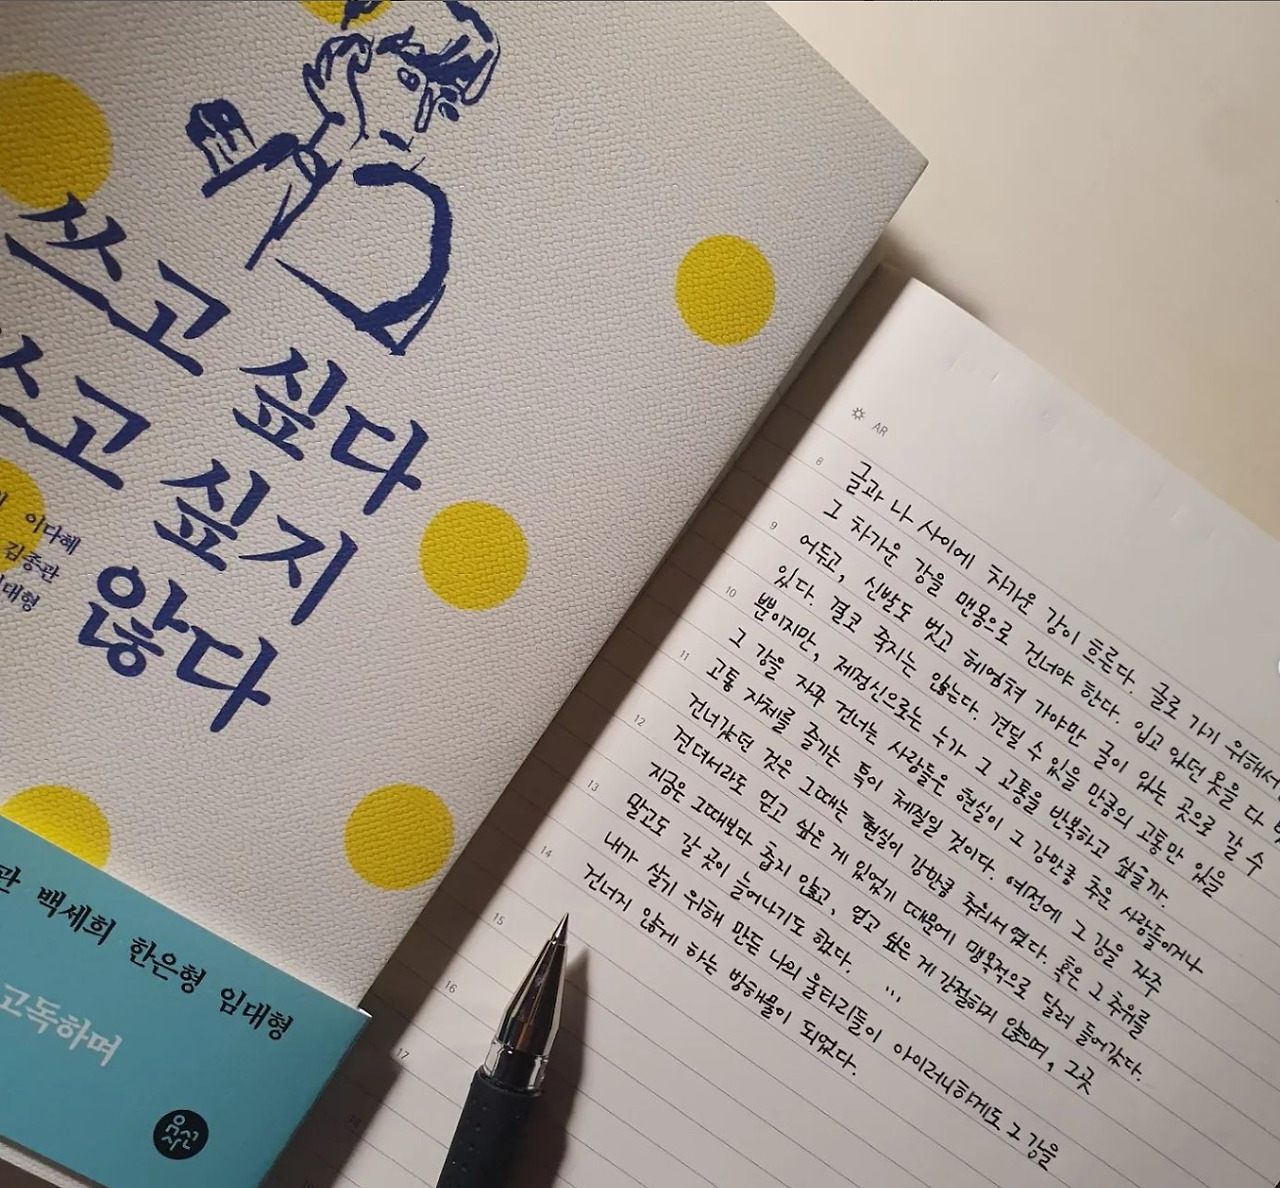 쓰고 싶다
쓰고 싶지
않다
이다혜
김종관
백세희 한은형 임대형
고독하며
유선사
AR
8
9
10
11
12
13
14
15
16
17
18
글과 나 사이에 차가운 강이 흐른다. 글로 가기 위해서
그 차가운 강을 맨몸으로 건너야 한다. 입고 있던 옷을 다
어두고, 신발도 벗고 헤엄쳐 가야만 글이 있는 곳으로 갈 수
있다. 결코 죽지는 않는다. 견딜 수 있을 만큼의 고통만 있을
뿐이지만, 제정신으로는 누가 그 고통을 반복하고 싶을까.
그 강을 자꾸 건너는 사람들은 현실이 그 강만큼 추운 사람들이거나
고통 자체를 즐기는 특이 체질일 것이다. 예전에 그 강을 자주
건너갔던 것은 그때는 현실이 강만큼 추워서였다. 혹은 그 추위를
견뎌서라도 얻고 싶은 게 있었기 때문에 맹목적으로 달려 들어갔다.
지금은 그때보다 춥지 않고, 얻고 싶은 게 간절하지 않으며, 그곳
말고도 갈 곳이 늘어나기도 했다. ...
내가 살기 위해 만든 나의 울타리들이 아이러니하게도 그 강을
건너지 않게 하는 방해물이 되었다.